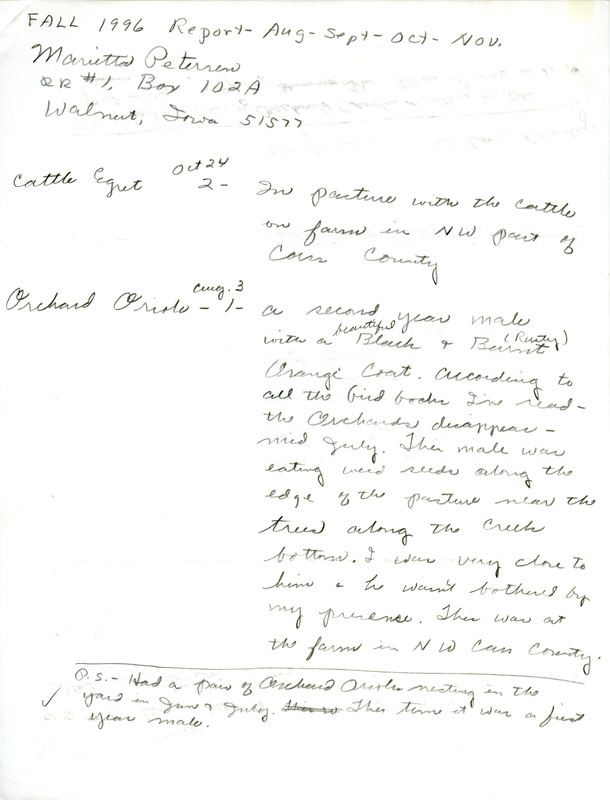 FALL 1996 Report - Aug - Sept - Oct - Nov.
Marietta Petersen
RR #1, Box 102A
Walnut, Iowa 51577
Cattle Egret Oct 24 2 - In pasture with the cattle
on farm in NW part of
Cass County
Orchard Oriole - Aug. 3 1 - a second year male
with a beautiful Black & Burnt (Rusty)
Orange Coat. According to
all the bird books I've read -
the Orchards disappear -
mid July. This male was
eating weed seeds along the
edge of the pasture near the
trees along the Creek
bottom. I was very close to
him & he wasn't bothered by
my presence. This was at
the farm in NW Cass County.
P.S. - Had a pair of Orchard Orioles nesting in the
✓ yard in June & July. This time it was a first
year male.